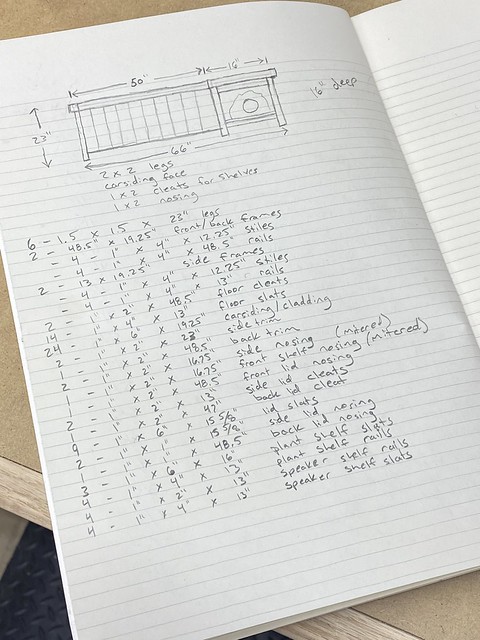 50"
16"
16" deep
23"
66"
2 x 2 legs
carsiding face
1 x 2 cleats for shelves
1 x 2 nosing
6 - 1.5 x 1.5 x 23" legs
2 - 48.5" x 19.25" front/back frames
- 4 - 1" x 4" x 12.25" stiles
- 4 - 1" x 4" x 48.5" rails
2 - 13 x 19.25" side frames
- 4 - 1" x 4" x 12.25" stiles
- 4 - 1" x 4" x 13" rails
2 - 1" x 2" x 48.5" floor cleats
14 - 1" x 4" x 13" floor slats
24 - 1" x 6" x 19.25 carsiding/cladding
2 - 1" x 2" x 23" side trim
1 - 1" x 2" x 48.5" back trim
2 - 1" x 2" x 16.75 side nosing (mitered)
1 - 1" x 2" x 16.75 front shelf nosing (mitered)
1 - 1" x 2" x 48.5 front lid nosing
2 - 1" x 2" x 13" side lid cleats
1 - 1" x 2" x 47" back lid cleat
9 - 1" x 6" x 15 5/8 lid slats
2 - 1" x 1" x 15 5/8" side lid nosing
1 - 1" x 1" x 48.5 back lid nosing
3 - 1" x 6" x 16" plant shelf slats
4 - 1" x 4" x 13" plant shelf rails
4 - 1" x 2" x 13" speaker shelf rails
4 - 1" x 4" x 13" speaker shelf slats